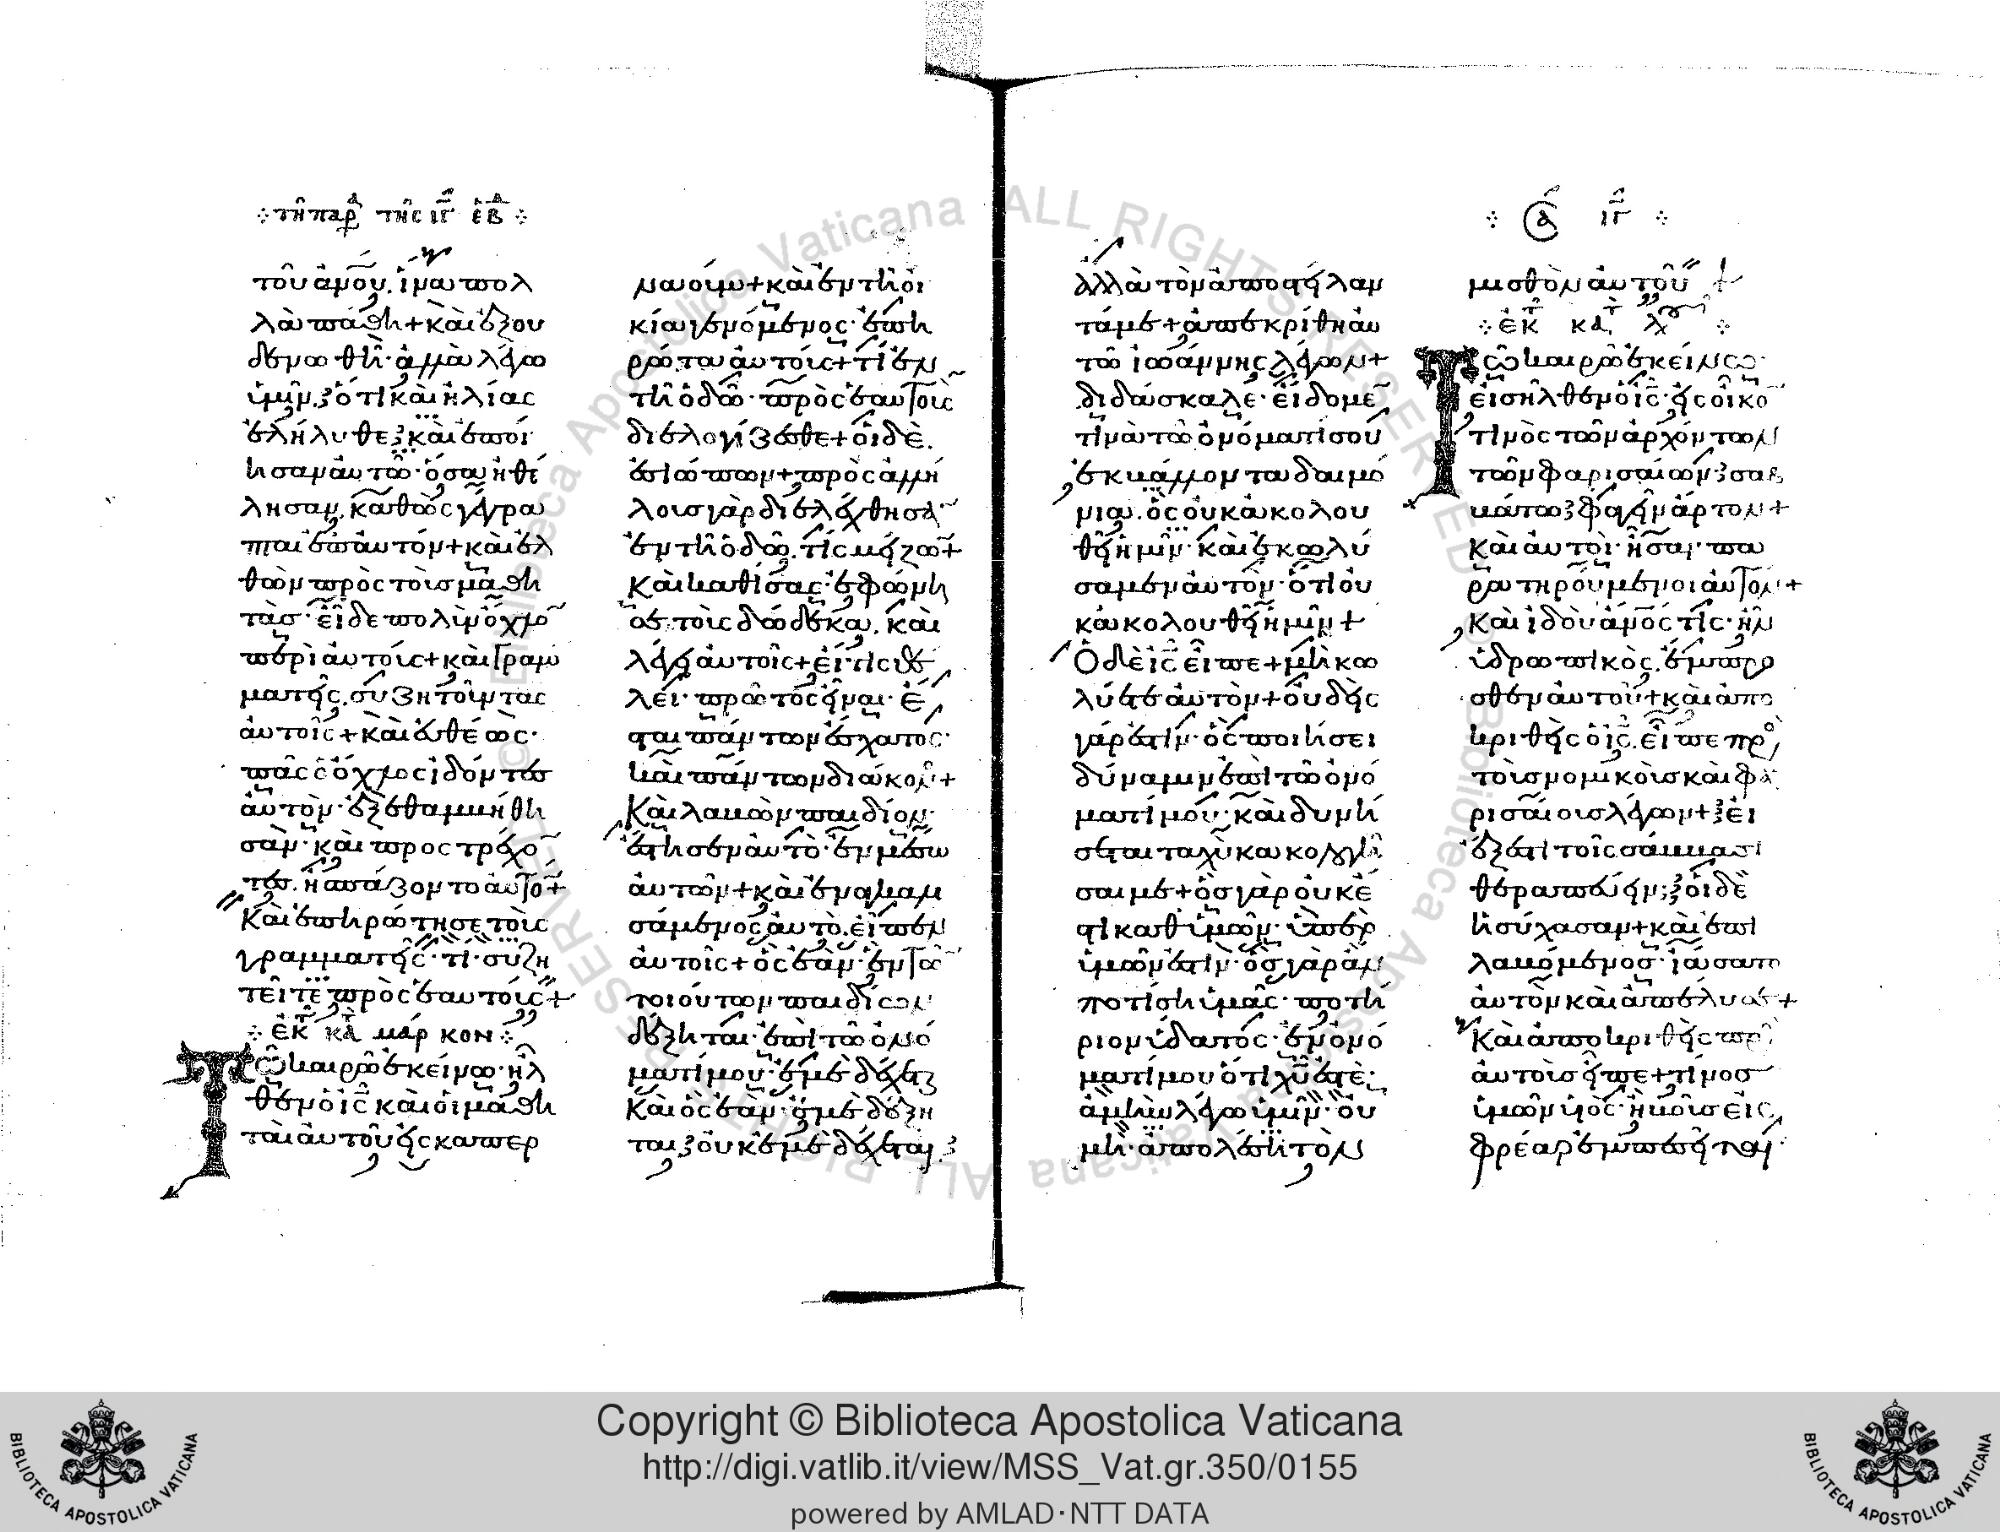 τῆ παρ τῆς ιγ εβ
τοῦ ἀνου. ἵνα πολ
λὰ πάθη + καὶ ἐξου
δενωθῆ· ἀλλὰ λέγω
ὑμῖν, ὅτι καὶ ἠλίας
ἐλήλυθε, καὶ ἐποί
ησαν αὐτῶ· ὅσα ἠθέ
λησαν, καθὼς γέγρα
πται ἐπ' αὐτόν + καὶ ἐλ
θὼν πρὸς τοὺς μαθη
τὰς· εἶδε πολὺν ὄχλο
περὶ αὐτούς + καὶ γραμ
ματεῖς, συζητοῦντας
αὐτοῖς + καὶ εὐθέως·
πᾶς ὁ ὄχλος ἰδόντες
αὐτὸν· ἐξεθαμβήθη
σαν· καὶ προστρέχο
τες. ἠσπάζοντο αὐτο +
Καὶ ἐπηρώτησε τοὺς
γραμματεῖς· τί συζη
τεῖτε πρὸς ἑαυτούς +
ἐκ κα μάρκον
Τῶ καιρῶ ἐκείνω· ἦλ
θεν ὁ ις καὶ οἱ μαθη
ταὶ αὐτοῦ εἰς καπερ
ναούμ + καὶ ἐν τῆ οἰ
κία γενόμενος· ἐπη
ρώτα αὐτούς + τί ἐν
τῆ ὁδῶ· πρὸς ἑαυτοὺς
διελογίζεσθε + οἱ δὲ.
ἐσιώπων + πρὸς ἀλλή
λους γὰρ διελέχθησα
ἐν τῆ ὁδῶ, τίς μείζων +
Καὶ καθίσας· ἐφώνη
σε τοὺς δώδεκα, καὶ
λέγει αὐτοῖς + εἴ τις θέ
λει· πρῶτος εἶναι· ἔ
σται πάντων ἔσχατος·
καὶ πάντων διάκον +
Καὶ λαβὼν παιδίον·
ἔστησεν αὐτὸ· ἐν μέσω
αὐτῶν + καὶ ἐναγκαλι
σάμενος αὐτὸ. εἶπεν
αὐτοῖς + ὃς ἐὰν· ἐν τῶ
τοιούτων παιδίων
δέξηται· ἐπὶ τῶ ὀνό
ματί μου· ἐμὲ δέχετ
Καὶ ὃς ἐὰν· ἐμὲ δέξη
ται, οὐκ ἐμὲ δέχεται,
α ιγ
ἀλλὰ τὸν ἀποστείλαν
τά με + ἀπεκρίθη αὐ
τῶ ἰωάννης λέγων +
διδάσκαλε· εἴδομε
τινὰ τῶ ὀνόματί σου
ἐκβάλλοντα δαιμό
νια. ὃς οὐκ ἀκολου
θεῖ ἡμῖν· καὶ ἐκωλύ
σαμεν αὐτὸν· ὅτι οὐ
κ ἀκολουθεῖ ἡμῖν +
Ὁ δὲ ις εἶπε + μὴ κω
λύετε αὐτὸν + οὐδεὶς
γάρ ἐστιν· ὃς ποιήσει
δύναμιν ἐπὶ τῶ ὀνό
ματί μου· καὶ δυνή
σεται ταχὺ κακολογῆ
σαι με + ὃς γὰρ οὐκ ἔ
στι καθ' ὑμῶν· ὑπὲρ
ὑμῶν ἐστιν· ὃς γὰρ ἂν
ποτίση ὑμᾶς· ποτή
ριον ὕδατος· ἐν ὀνό
ματί μου ὅτι χυ ἐστὲ·
ἀμὴν λέγω ὑμῖν· οὐ
μὴ ἀπολέση τὸν
μισθὸν αὐτοῦ +
ἐκ κα λ
Τῶ καιρῶ ἐκείνω·
εἰσῆλθεν ὁ ις· εἰς οἶκο
τινὸς τῶν ἀρχόντων
τῶν φαρισαίων, σαβ
βάτω, φαγεῖν ἄρτον +
Καὶ αὐτοὶ· ἦσαν πα
ρατηρούμενοι αὐτον +
Καὶ ἰδοὺ ἀνός τις· ἦν
ὑδρωπικὸς, ἔμπρο
σθεν αὐτοῦ + καὶ ἀπο
κριθεὶς ὁ ις. εἶπε πρ
τοὺς νομικοὺς καὶ φα
ρισαίους λέγων + εἰ
ἔξεστι τοῖς σάββασι
θεραπεύειν; οἱ δὲ
ἡσύχασαν + καὶ ἐπι
λαβόμενος· ἰάσατο
αὐτὸν καὶ ἀπέλυσε +
Καὶ ἀποκριθεὶς πρ
αὐτοὺς εἶπε + τίνος
ὑμῶν υἱὸς· ἢ βοῦς εἰς
φρέαρ ἐμπεσεῖται·
Copyright © Biblioteca Apostolica Vaticana
http://digi.vatlib.it/view/MSS_Vat.gr.350/0155
powered by AMLAD·NTT DATA
BIBLIOTECA APOSTOLICA VATICANA
BIBLIOTECA APOSTOLICA VATICANA